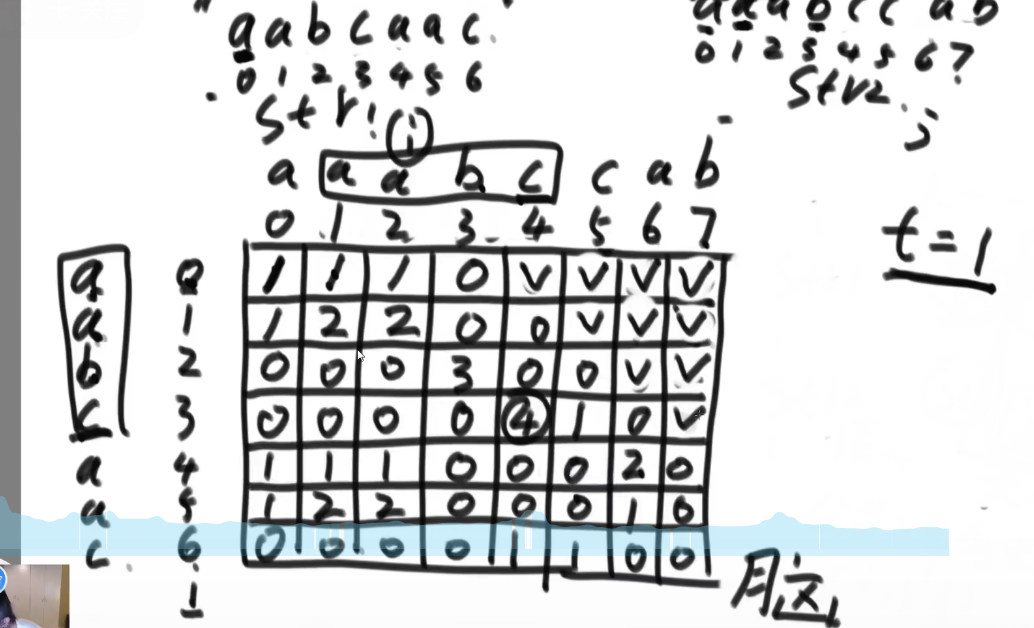 " a a b c a a c. "
0 1 2 3 4 5 6
Str1
a a a b c c a b
0 1 2 3 4 5 6 7
Str2
j
i
a a a b c c a b
0 1 2 3 4 5 6 7
t=1
a 0 1 1 1 0 v v v v
a 1 1 2 2 0 0 v v v
b 2 0 0 0 3 0 0 v v
c 3 0 0 0 0 4 1 0 v
a 4 1 1 1 0 0 0 2 0
a 5 1 2 2 0 0 0 1 0
c 6 0 0 0 0 1 1 0 0
i